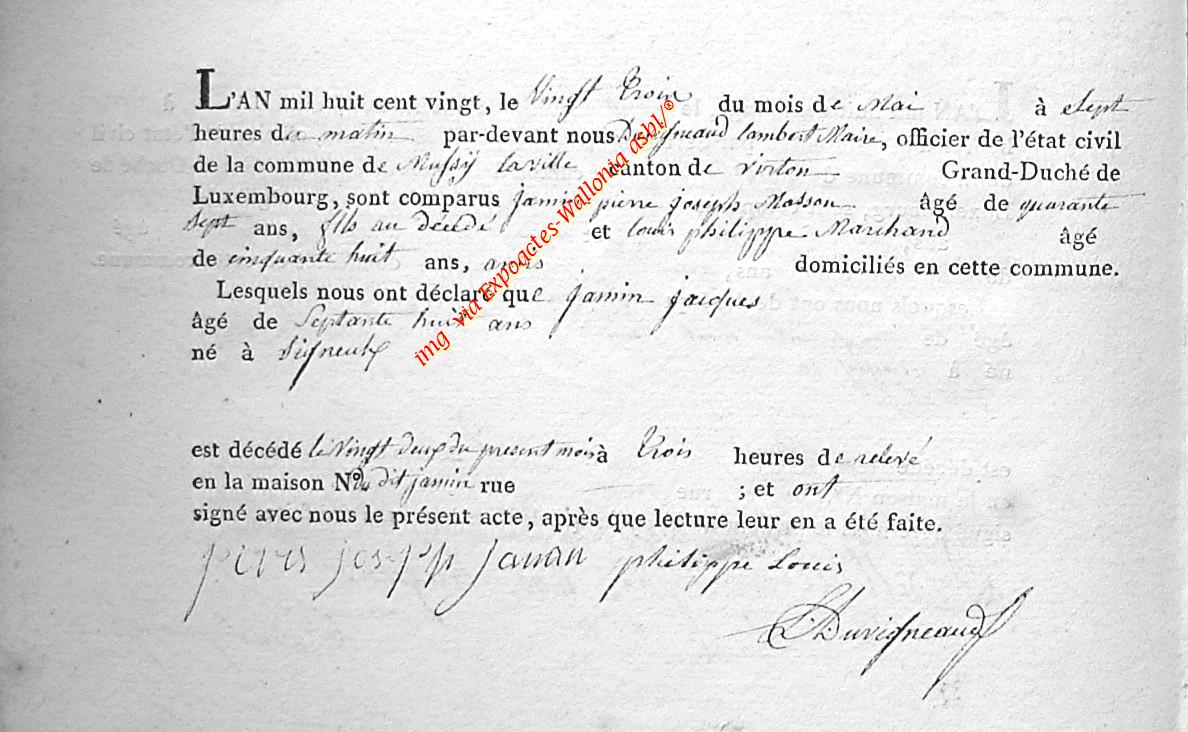 L'AN mil huit cent vingt, le Vingt Trois du mois de Mai à Sept
heures du matin par-devant nous Duvigneaud Lambert Maire, officier de l'état civil
de la commune de Mussÿ laville canton de Virton Grand-Duché de
Luxembourg, sont comparus jamin pierre joseph Masson âgé de quarante
Sept ans, fils au décédé et louis philippe Marchand âgé
de cinquante huit ans, amis domiciliés en cette commune.
Lesquels nous ont déclaré que jamin jacques
âgé de Septante huit ans
né à Signeulx
est décédé le Vingt deux du present mois à Trois heures de relevé
en la maison No. dit jamin rue ; et ont
signé avec nous le présent acte, après que lecture leur en a été faite.
joseph philippe Louis
L Duvigneaud
img via Expoactes-Wallonia asbl/®